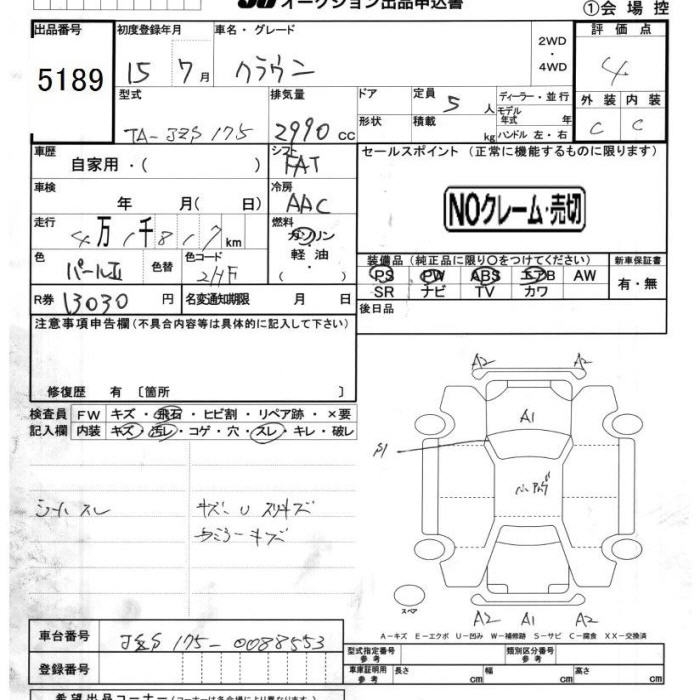 オークション出品申込書
①会場控
出品番号 初度登録年月 車名・グレード 評価点
5189 15 7月 クラウン 2WD・4WD 4
型式 排気量 ドア 定員 5人 ディーラー・並行 外装 内装
TA-JZS175 2990cc 形状 積載 kg モデル年式 年 ハンドル 左・右 C C
車歴 シフト セールスポイント (正常に機能するものに限ります)
自家用・( ) FAT
車検 冷房
年 月( 日) AAC NOクレーム・売切
走行 燃料
4万1千817km ガソリン・軽油・( )
色 色替 色コード 装備品 (純正品に限り○をつけてください) 新車保証書
パールⅡ 2HF PS PW ABS エアB AW 有・無
SR ナビ TV カワ
R券 13030円 名変通知期限 月 日 後日品
注意事項申告欄 (不具合内容等は具体的に記入して下さい)
修復歴 有 〔箇所 〕
検査員 FW キズ・飛石・ヒビ割・リペア跡・×要
記入欄 内装 キズ・汚レ・コゲ・穴・スレ・キレ・破レ
シートスレ キズ・U スリキズ
ウラミラーキズ
A2 A2
A1
S1
スペア
A2 A1 A2
A-キズ E-エクボ U-凹み W-補修跡 S-サビ C-腐食 XX-交換済
車台番号 JZS175-0088553 型式指定番号 参考 類別区分番号 参考
登録番号 車庫証明用 参考 長さ cm 幅 cm 高さ cm
希望出品コーナー (コーナーは各会場により異なります)